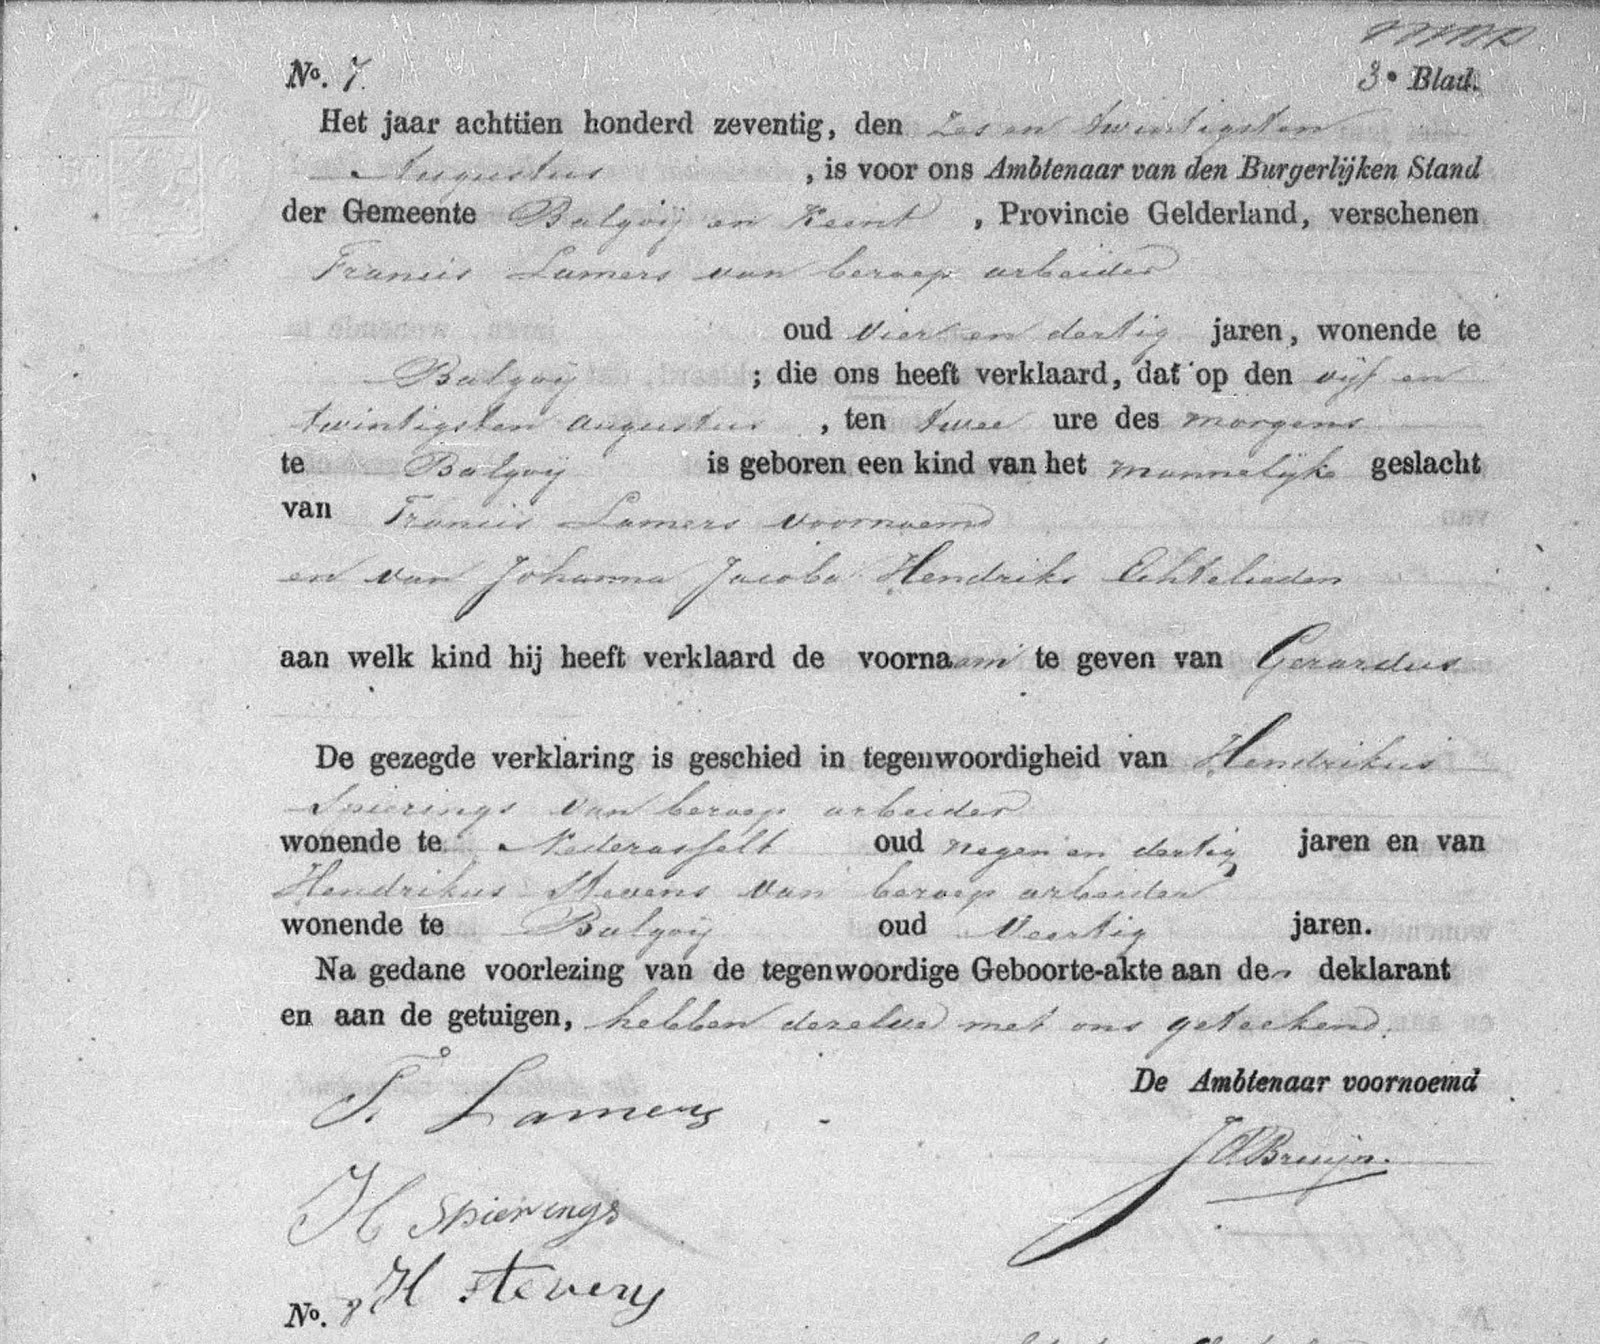 No. 7.
3e Blad.
Het jaar achttien honderd zeventig, den Zes en twintigsten
Augustus , is voor ons Ambtenaar van den Burgerlijken Stand
der Gemeente Balgoij en Keent , Provincie Gelderland, verschenen
Francis Lamers van beroep arbeider
oud vier en dertig jaren, wonende te
Balgoij ; die ons heeft verklaard, dat op den vijf en
twintigsten augustus , ten twee ure des morgens
te Balgoij is geboren een kind van het mannelijke geslacht
van Francis Lamers voornoemd
en van Johanna Jacoba Hendriks Echtelieden
aan welk kind hij heeft verklaard de voornaam te geven van Gerardus
De gezegde verklaring is geschied in tegenwoordigheid van Hendrikus
Spierings van beroep arbeider
wonende te Nederasselt oud negen en dertig jaren en van
Hendrikus Stevens van beroep arbeider
wonende te Balgoij oud Veertig jaren.
Na gedane voorlezing van de tegenwoordige Geboorte-akte aan den deklarant
en aan de getuigen, hebben dezelve met ons geteekend.
De Ambtenaar voornoemd
F. Lamers
Bruijn.
H Spierings
H Stevens
No. 8